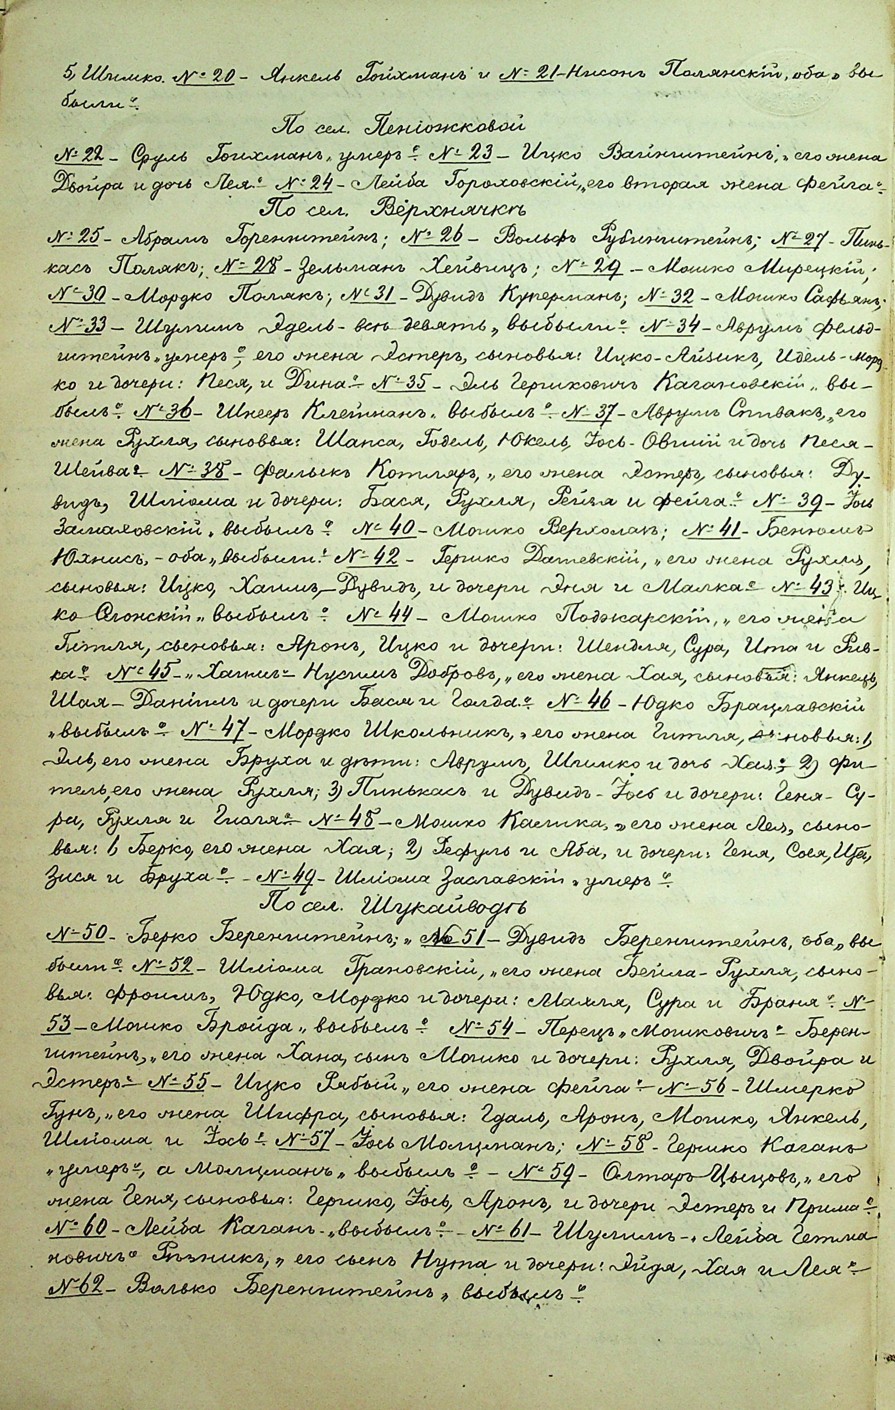 5, Шимко. № 20 - Янкель Гойхманъ и № 21 - Нисонъ Полянскій, оба „вы-
были“.
По сел. Пеніожковой
№ 22 - Сруль Гойхманъ „умеръ“. № 23 - Ицко Вайнштейнъ, „его жена
Двойра и дочь Лея“. № 24 - Лейба Гороховскій, „его вторая жена Фейга“.
По сел. Верхнячкѣ
№ 25 - Абрамъ Горенштейнъ; № 26 - Вольфъ Рубинштейнъ; № 27 - Пинь-
касъ Полякъ; № 28 - Зельманъ Хейвицъ; № 29 - Мошко Мирецкій;
№ 30 - Мордко Полякъ; № 31 - Дувидъ Куперманъ; № 32 - Мошко Сафьянъ;
№ 33 - Шулимъ Эдель - всѣ девять „выбыли“. № 34 - Аврумъ Фельд-
штейнъ „умеръ“, его жена Эстеръ, сыновья: Ицко-Айзикъ, Идель-Морд-
ко и дочери: Песя, и Дина“. № 35 - Эль Гершковичъ Кагановскій „вы-
былъ“. № 36 - Шнееръ Клейманъ „выбылъ“. № 37 - Аврумъ Спивакъ, „его
жена Рухля, сыновья: Шапса, Годель, Юкель, Іось-Овшій и дочь Песя-
Шейва“. № 38 - Фалькъ Котляръ, „его жена Эстеръ, сыновья: Ду-
видъ, Шліома и дочери: Бася, Рухля, Рейзя и Фейга“. № 39 - Іось
выбылъ“. № 40 - Мошко Верхолакъ; № 41 - Беньюмъ
Юхнисъ, - оба „выбыли“. № 42 - Гершко Дашевскій, „его жена Рухля,
сыновья: Ицко, Хаимъ, Дувидъ, и дочери Эня и Малка“. № 43. Иц-
ко „выбылъ“. № 44 - Мошко Поджарскій, „его жена
Гитля, сыновья: Аронъ, Ицко и дочери: Шендля, Сура, Ита и Рив-
ка“. № 45 - „Хаимъ“ Нусимъ Добровъ, „его жена Хая, сыновья: Янкель,
Шая-Даніилъ и дочери Бася и Голда“. № 46 - Юдко Брацлавскій
„выбылъ“. № 47 - Мордко Школьникъ, „его жена Гитля, сыновья: 1,
Эль, его жена Бруха и дѣти: Аврумъ, Шимко и дочь Хая; 2) Фи-
тель, его жена Рухля; 3) Пинькасъ и Дувидъ-Іось и дочери: Геня-Су-
ра, Рухля и № 48 - Мошко Калика, „его жена Лея, сыно-
вья: 1, Берко, его жена Хая; 2, Рефуль и Аба, и дочери: Геня, Сося,
Зися и Бруха“. - № 49 - Шліома Заславскій „умеръ“.
По сел. Шукайводѣ
№ 50 - Берко Беренштейнъ; „№ 51 - Дувидъ Беренштейнъ, оба „вы
были“. № 52 - Шліома Грановскій, „его жена Бейла-Рухля, сыно-
вья: Фроимъ, Юдко, Мордко и дочери: Махля, Сура и Браня“. №
53 - Мошко Бройда „выбылъ“. № 54 - Перецъ „Мошковичъ“ Берен-
штейнъ, „его жена Хана, сынъ Мошко и дочери: Рухля, Двойра и
Эстеръ“. № 55 - Ицко Рябый „его жена Фейга“. № 56 - Шмерко
Гунъ, „его жена Шифра, сыновья: Гдаль, Аронъ, Мошко, Янкель,
Шліома и Іось“. № 57 - Іось Молцманъ; № 58 - Гершко Каганъ
„умеръ“, а Молцманъ „выбылъ“. - № 59 - Олтаръ Цыцовъ, „его
жена Геня, сыновья: Гершко, Іось, Аронъ, и дочери Эстеръ и Прима“.
№ 60 - Лейба Каганъ „выбылъ“. - № 61 - Шулимъ - „Лейба Гетма
новичъ“ Рѣзникъ, „его сынъ Нута и дочери: Эйдя, Хая и Лея“.
№ 62 - Волько Беренштейнъ „выбылъ“.